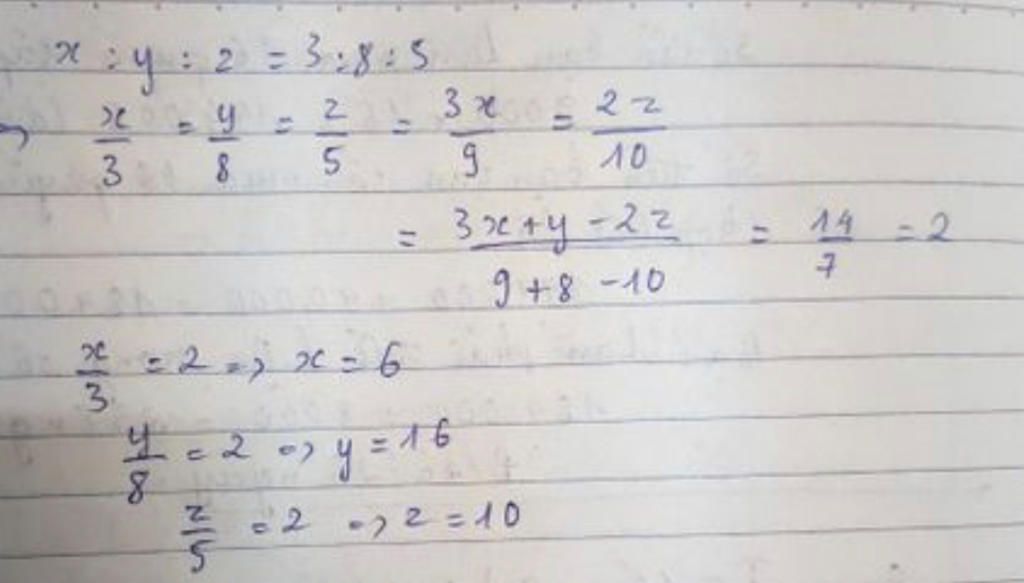 x : y : z = 3 : 8 : 5
=> x/3 = y/8 = z/5 = 3x/9 = 2z/10
= (3x + y - 2z)/(9 + 8 - 10) = 14/7 = 2
x/3 = 2 => x = 6
y/8 = 2 => y = 16
z/5 = 2 => z = 10